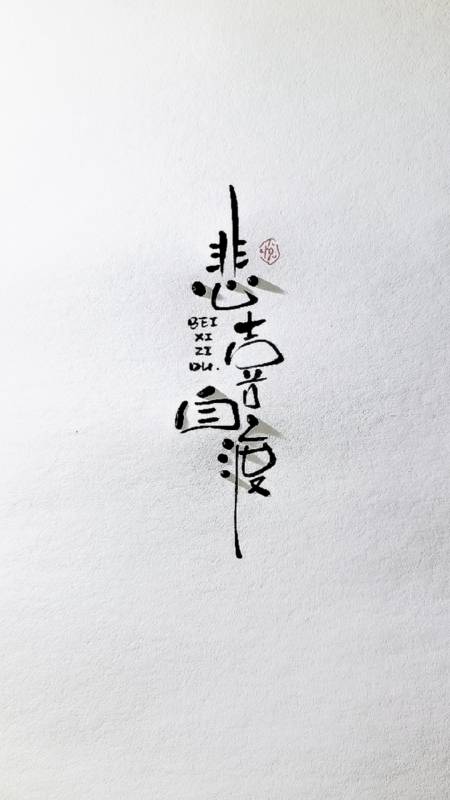 悲喜自渡
BEI
XI
ZI
DU.
悦